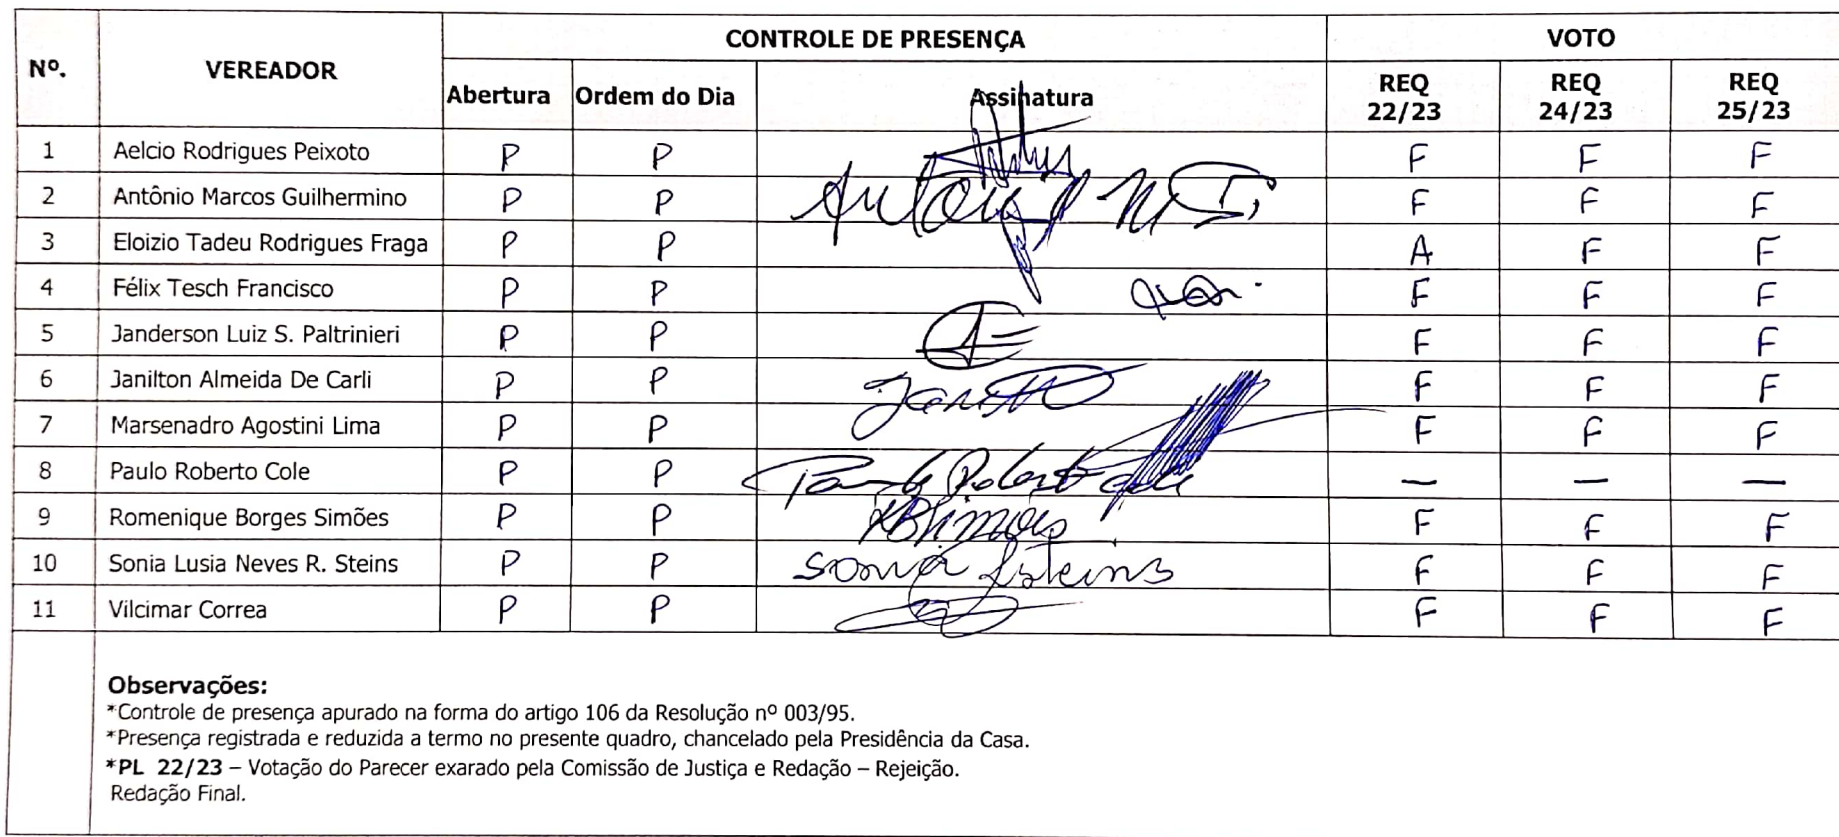 CONTROLE DE PRESENÇA VOTO
Nº. VEREADOR Abertura Ordem do Dia Assinatura REQ 22/23 REQ 24/23 REQ 25/23
1 Aelcio Rodrigues Peixoto P P F F F
2 Antônio Marcos Guilhermino P P F F F
3 Eloizio Tadeu Rodrigues Fraga P P A F F
4 Félix Tesch Francisco P P F F F
5 Janderson Luiz S. Paltrinieri P P F F F
6 Janilton Almeida De Carli P P F F F
7 Marsenadro Agostini Lima P P F F F
8 Paulo Roberto Cole P P Paulo Roberto Cole — — —
9 Romenique Borges Simões P P F F F
10 Sonia Lusia Neves R. Steins P P Sonia Steins F F F
11 Vilcimar Correa P P F F F
Observações:
*Controle de presença apurado na forma do artigo 106 da Resolução nº 003/95.
*Presença registrada e reduzida a termo no presente quadro, chancelado pela Presidência da Casa.
*PL 22/23 – Votação do Parecer exarado pela Comissão de Justiça e Redação – Rejeição.
Redação Final.